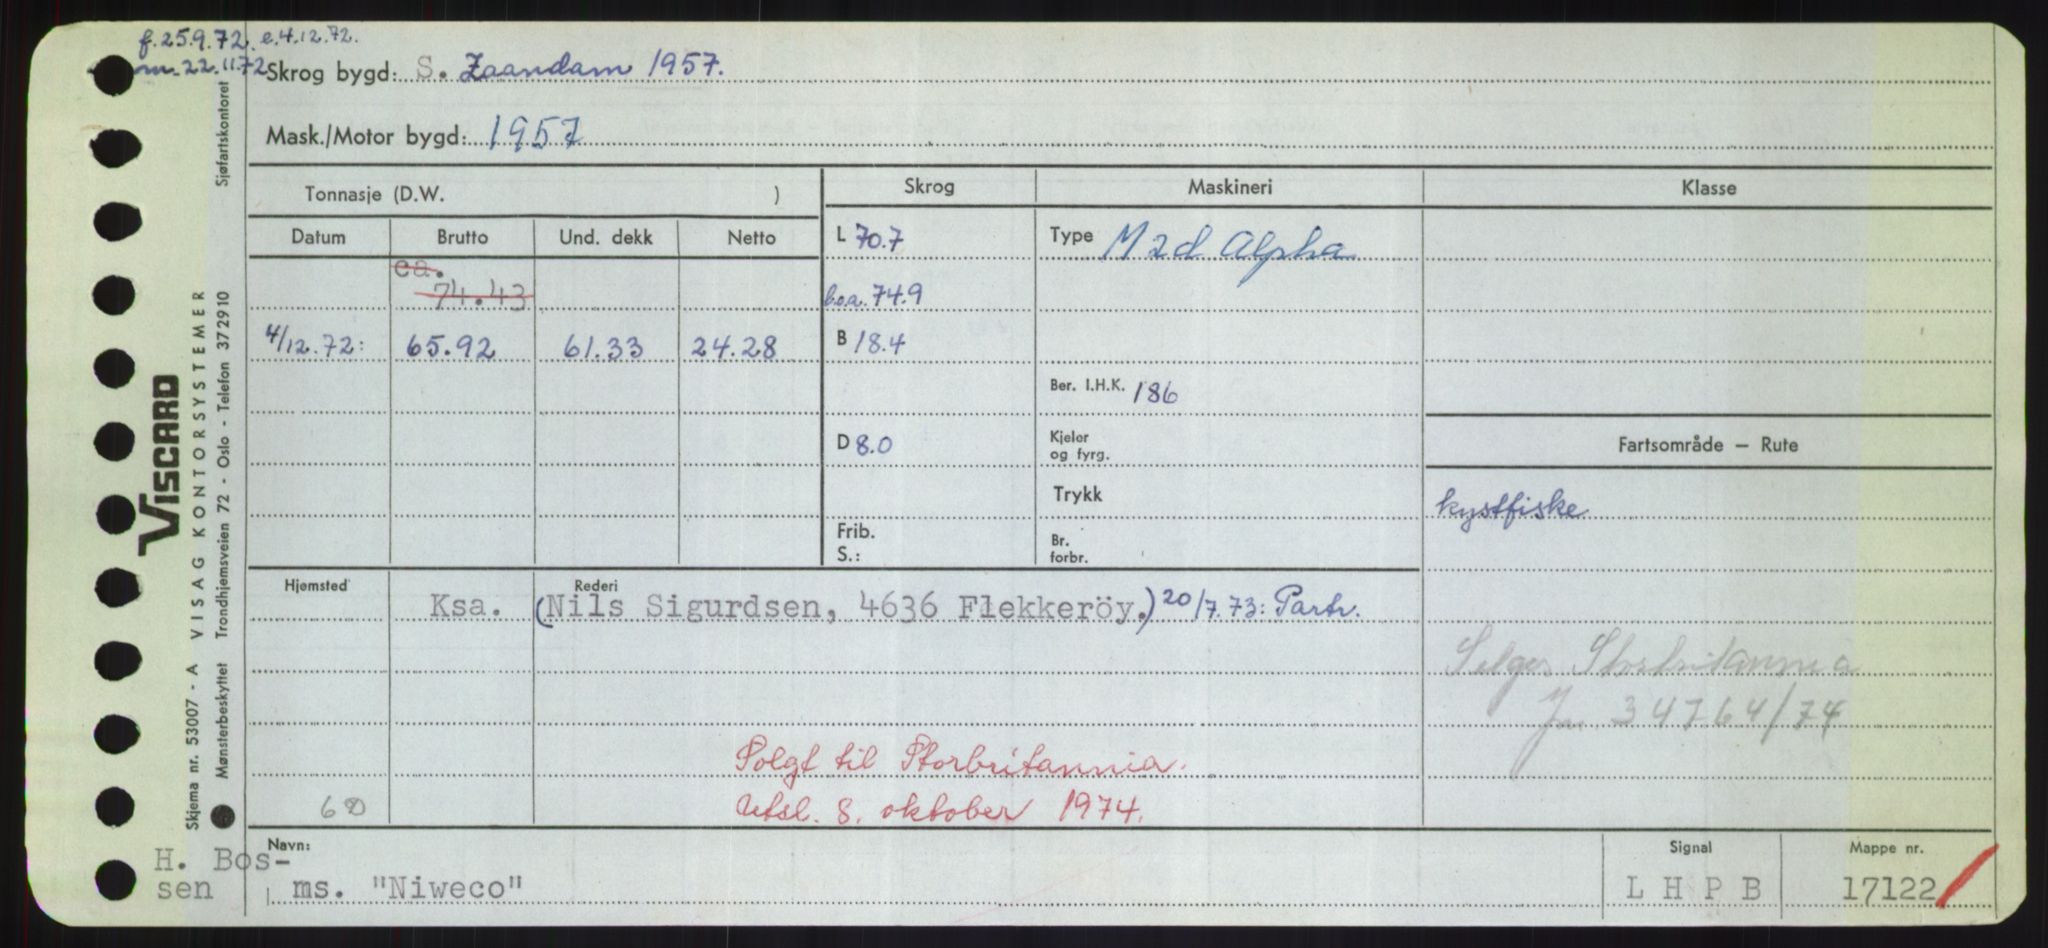 f. 25.9.72. e.4.12.72.
m. 22.11.72
Skrog bygd: S. Zaandam 1957.
Mask./Motor bygd: 1957
Tonnasje (D.W. )
Skrog
Maskineri
Klasse
Datum
Brutto
Und. dekk
Netto
L 70.7
Type M 2d Alpha
ca.
74.43
b.o.a. 74.9
4/12.72: 65.92 61.33 24.28
B 18.4
Ber. I.H.K. 186
D 8.0
Kjeler
og fyrg.
Fartsområde — Rute
Trykk
kystfiske
Frib.
S.:
Br.
forbr.
Hjemsted
Rederi
Ksa. (Nils Sigurdsen, 4636 Flekkeröy.) 20/7.73: Partr.
Selges Storbritannia
Jn. 34764/74
Solgt til Storbritannia.
Utsl. 8. oktober 1974.
60
Navn:
H. Bos-
sen
ms. "Niweco"
Signal
L H P B
Mappe nr.
17122
VISCARD
Skjema nr. 53007 - A VISAG KONTORSYSTEMER
Mønsterbeskyttet Trondhjemsveien 72 - Oslo - Telefon 372910 Sjøfartskontoret